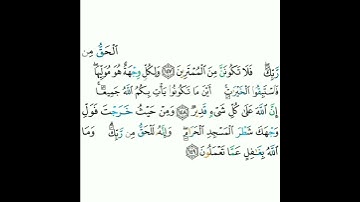 ٱلْحَقُّ مِن
رَّبِّكَ ۖ فَلَا تَكُونَنَّ مِنَ ٱلْمُمْتَرِينَ ١٤٧ وَلِكُلٍّ وِجْهَةٌ هُوَ مُوَلِّيهَا ۖ
فَٱسْتَبِقُوا۟ ٱلْخَيْرَٰتِ ۚ أَيْنَ مَا تَكُونُوا۟ يَأْتِ بِكُمُ ٱللَّهُ جَمِيعًا ۚ
إِنَّ ٱللَّهَ عَلَىٰ كُلِّ شَىْءٍ قَدِيرٌ ١٤٨ وَمِنْ حَيْثُ خَرَجْتَ فَوَلِّ
وَجْهَكَ شَطْرَ ٱلْمَسْجِدِ ٱلْحَرَامِ ۖ وَإِنَّهُۥ لَلْحَقُّ مِن رَّبِّكَ ۗ وَمَا
ٱللَّهُ بِغَٰفِلٍ عَمَّا تَعْمَلُونَ ١٤٩